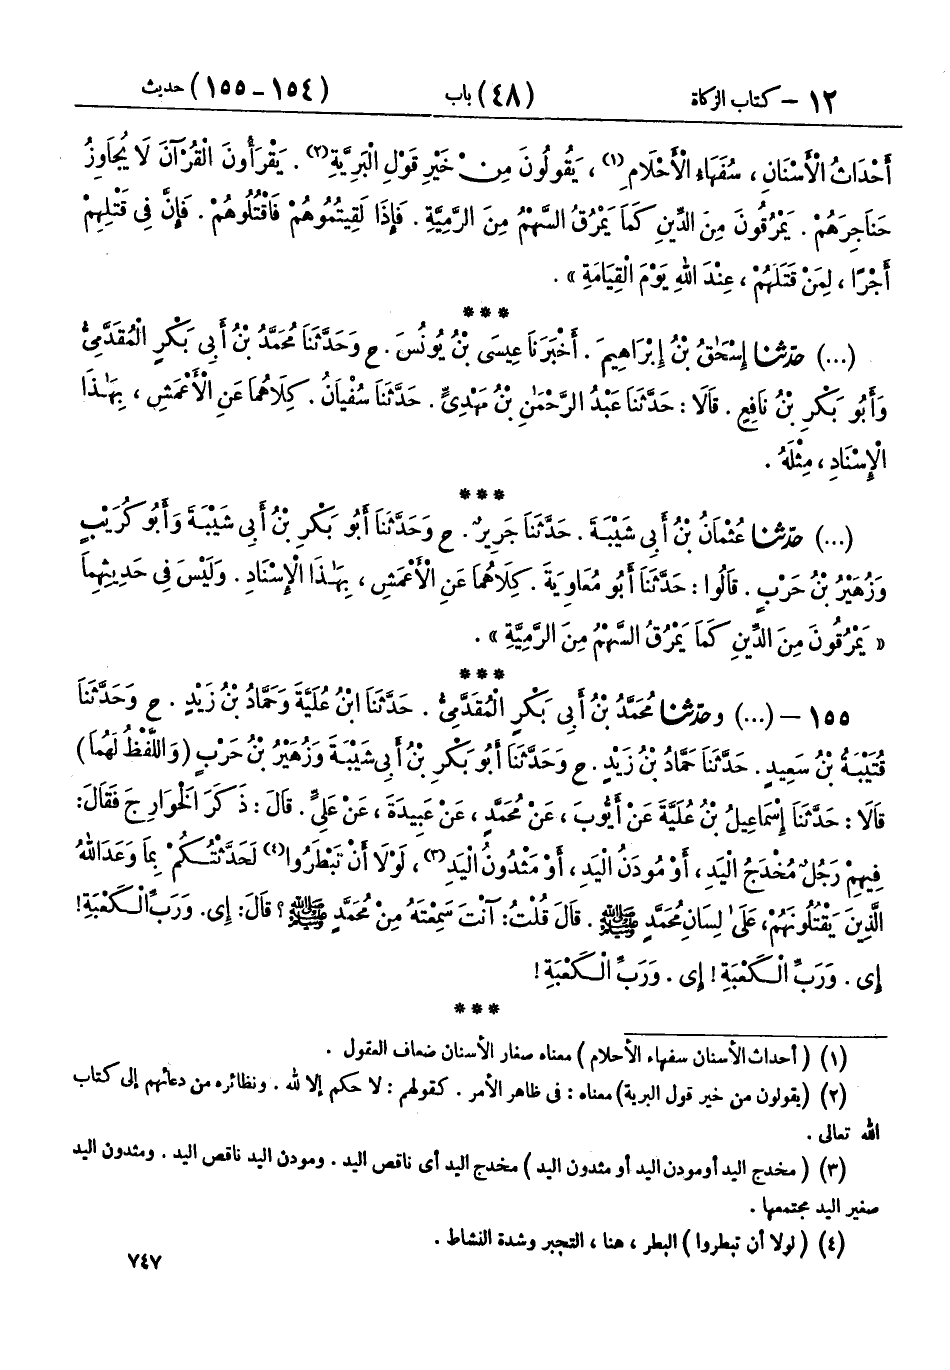 ١٢ – كتاب الزكاة (٤٨) باب (١٥٤ – ١٥٥) حديث
أَحْدَاثُ الْأَسْنَانِ ، سُفَهَاءُ الْأَحْلَامِ(١) ، يَقُولُونَ مِنْ خَيْرِ قَوْلِ الْبَرِيَّةِ(٢) . يَقْرَأُونَ الْقُرْآنَ لَا يُجَاوِزُ
حَنَاجِرَهُمْ . يَمْرُقُونَ مِنَ الدِّينِ كَمَا يَمْرُقُ السَّهْمُ مِنَ الرَّمِيَّةِ . فَإِذَا لَقِيتُمُوهُمْ فَاقْتُلُوهُمْ . فَإِنَّ فِى قَتْلِهِمْ
أَجْرًا ، لِمَنْ قَتَلَهُمْ ، عِنْدَ اللهِ يَوْمَ الْقِيَامَةِ » .
***
(...) حدّثنا إِسْحَٰقُ بْنُ إِبْرَاهِيمَ . أَخْبَرَنَا عِيسَى بْنُ يُونُسَ . ح وَحَدَّثَنَا مُحَمَّدُ بْنُ أَبِى بَكْرٍ الْمُقَدَّمِىُّ
وَأَبُو بَكْرِ بْنُ نَافِعٍ . قَالَا : حَدَّثَنَا عَبْدُ الرَّحْمَٰنِ بْنُ مَهْدِىٍّ . حَدَّثَنَا سُفْيَانُ . كِلَاهُمَا عَنِ الْأَعْمَشِ ، بِهَٰذَا
الْإِسْنَادِ ، مِثْلَهُ .
***
(...) حدّثنا عُثْمَانُ بْنُ أَبِى شَيْبَةَ . حَدَّثَنَا جَرِيرٌ . ح وَحَدَّثَنَا أَبُو بَكْرِ بْنُ أَبِى شَيْبَةَ وَأَبُو كُرَيْبٍ
وَزُهَيْرُ بْنُ حَرْبٍ . قَالُوا : حَدَّثَنَا أَبُو مُعَاوِيَةَ . كِلَاهُمَا عَنِ الْأَعْمَشِ ، بِهَٰذَا الْإِسْنَادِ . وَلَيْسَ فِى حَدِيثِهِمَا
« يَمْرُقُونَ مِنَ الدِّينِ كَمَا يَمْرُقُ السَّهْمُ مِنَ الرَّمِيَّةِ » .
***
١٥٥ – (...) وحدّثنا مُحَمَّدُ بْنُ أَبِى بَكْرٍ الْمُقَدَّمِىُّ . حَدَّثَنَا ابْنُ عُلَيَّةَ وَحَمَّادُ بْنُ زَيْدٍ . ح وَحَدَّثَنَا
قُتَيْبَةُ بْنُ سَعِيدٍ . حَدَّثَنَا حَمَّادُ بْنُ زَيْدٍ . ح وَحَدَّثَنَا أَبُو بَكْرِ بْنُ أَبِى شَيْبَةَ وَزُهَيْرُ بْنُ حَرْبٍ (وَاللَّفْظُ لَهُمَا)
قَالَا : حَدَّثَنَا إِسْمَاعِيلُ بْنُ عُلَيَّةَ عَنْ أَيُّوبَ ، عَنْ مُحَمَّدٍ ، عَنْ عَبِيدَةَ ، عَنْ عَلِىٍّ . قَالَ : ذَكَرَ الْخَوَارِجَ فَقَالَ :
فِيهِمْ رَجُلٌ مُخْدَجُ الْيَدِ ، أَوْ مُودَنُ الْيَدِ ، أَوْ مَثْدُونُ الْيَدِ(٣) ، لَوْلَا أَنْ تَبْطَرُوا(٤) لَحَدَّثْتُكُمْ بِمَا وَعَدَ اللهُ
الَّذِينَ يَقْتُلُونَهُمْ ، عَلَىٰ لِسَانِ مُحَمَّدٍ ﷺ . قَالَ قُلْتُ : آنْتَ سَمِعْتَهُ مِنْ مُحَمَّدٍ ﷺ ؟ قَالَ : إِى . وَرَبِّ الْكَعْبَةِ !
إِى . وَرَبِّ الْكَعْبَةِ ! إِى . وَرَبِّ الْكَعْبَةِ !
***
(١) ( أحداث الأسنان سفهاء الأحلام ) معناه صغار الأسنان ضعاف العقول .
(٢) (يقولون من خير قول البرية) معناه : فى ظاهر الأمر . كقولهم : لا حكم إلا لله . ونظائره من دعائهم إلى كتاب
الله تعالى .
(٣) ( مخدج اليد أو مودن اليد أو مثدون اليد ) مخدج اليد أى ناقص اليد . ومودن اليد ناقص اليد . ومثدون اليد
صغير اليد مجتمعها .
(٤) ( لولا أن تبطروا ) البطر ، هنا ، التجبر وشدة النشاط .
٧٤٧